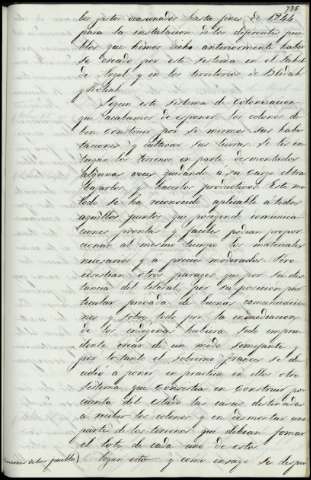 los gastos ocasionados hasta fines de 1844
para la instalacion de los diferentes pue
blos que hemos dicho anteriormente haber
se creado por este sistema en el Sahel
de Argel y en los territorios de Blidah
y Koleah.
Segun este sistema de colonizacion
que acabamos de esponer los colonos de
ben construir por si mismos sus habi
taciones y cultivar sus tierras. Se les en
tregan los terrenos en parte desmontados
algunas veces quedando a su cargo el tra
bajarlos y hacerlos productivos. Este me
todo se ha reconocido aplicable a todos
aquellos puntos que poseyendo comunica
ciones prontas y faciles podian propor
cionar al mismo tiempo los materiales
necesarios y a precios moderados. Pero
ecsistian otros parages que por su dis
tancia del litoral, por su posicion par
ticular privada de buenas comunicacio
nes sobre todo por la inmediacion
de los indigenas hubiera sido impru
dente crear de un modo semejante
por lo tanto el gobierno frances se de
cidió a poner en practica en ellos otro
sistema que consistia en construir por
cuenta del Estado las casas destinadas
a recibir los colonos y en desmontar una
parte de los terrenos que debian formar
el lote de cada uno de estos
Segun esto y como ensayo se dispu